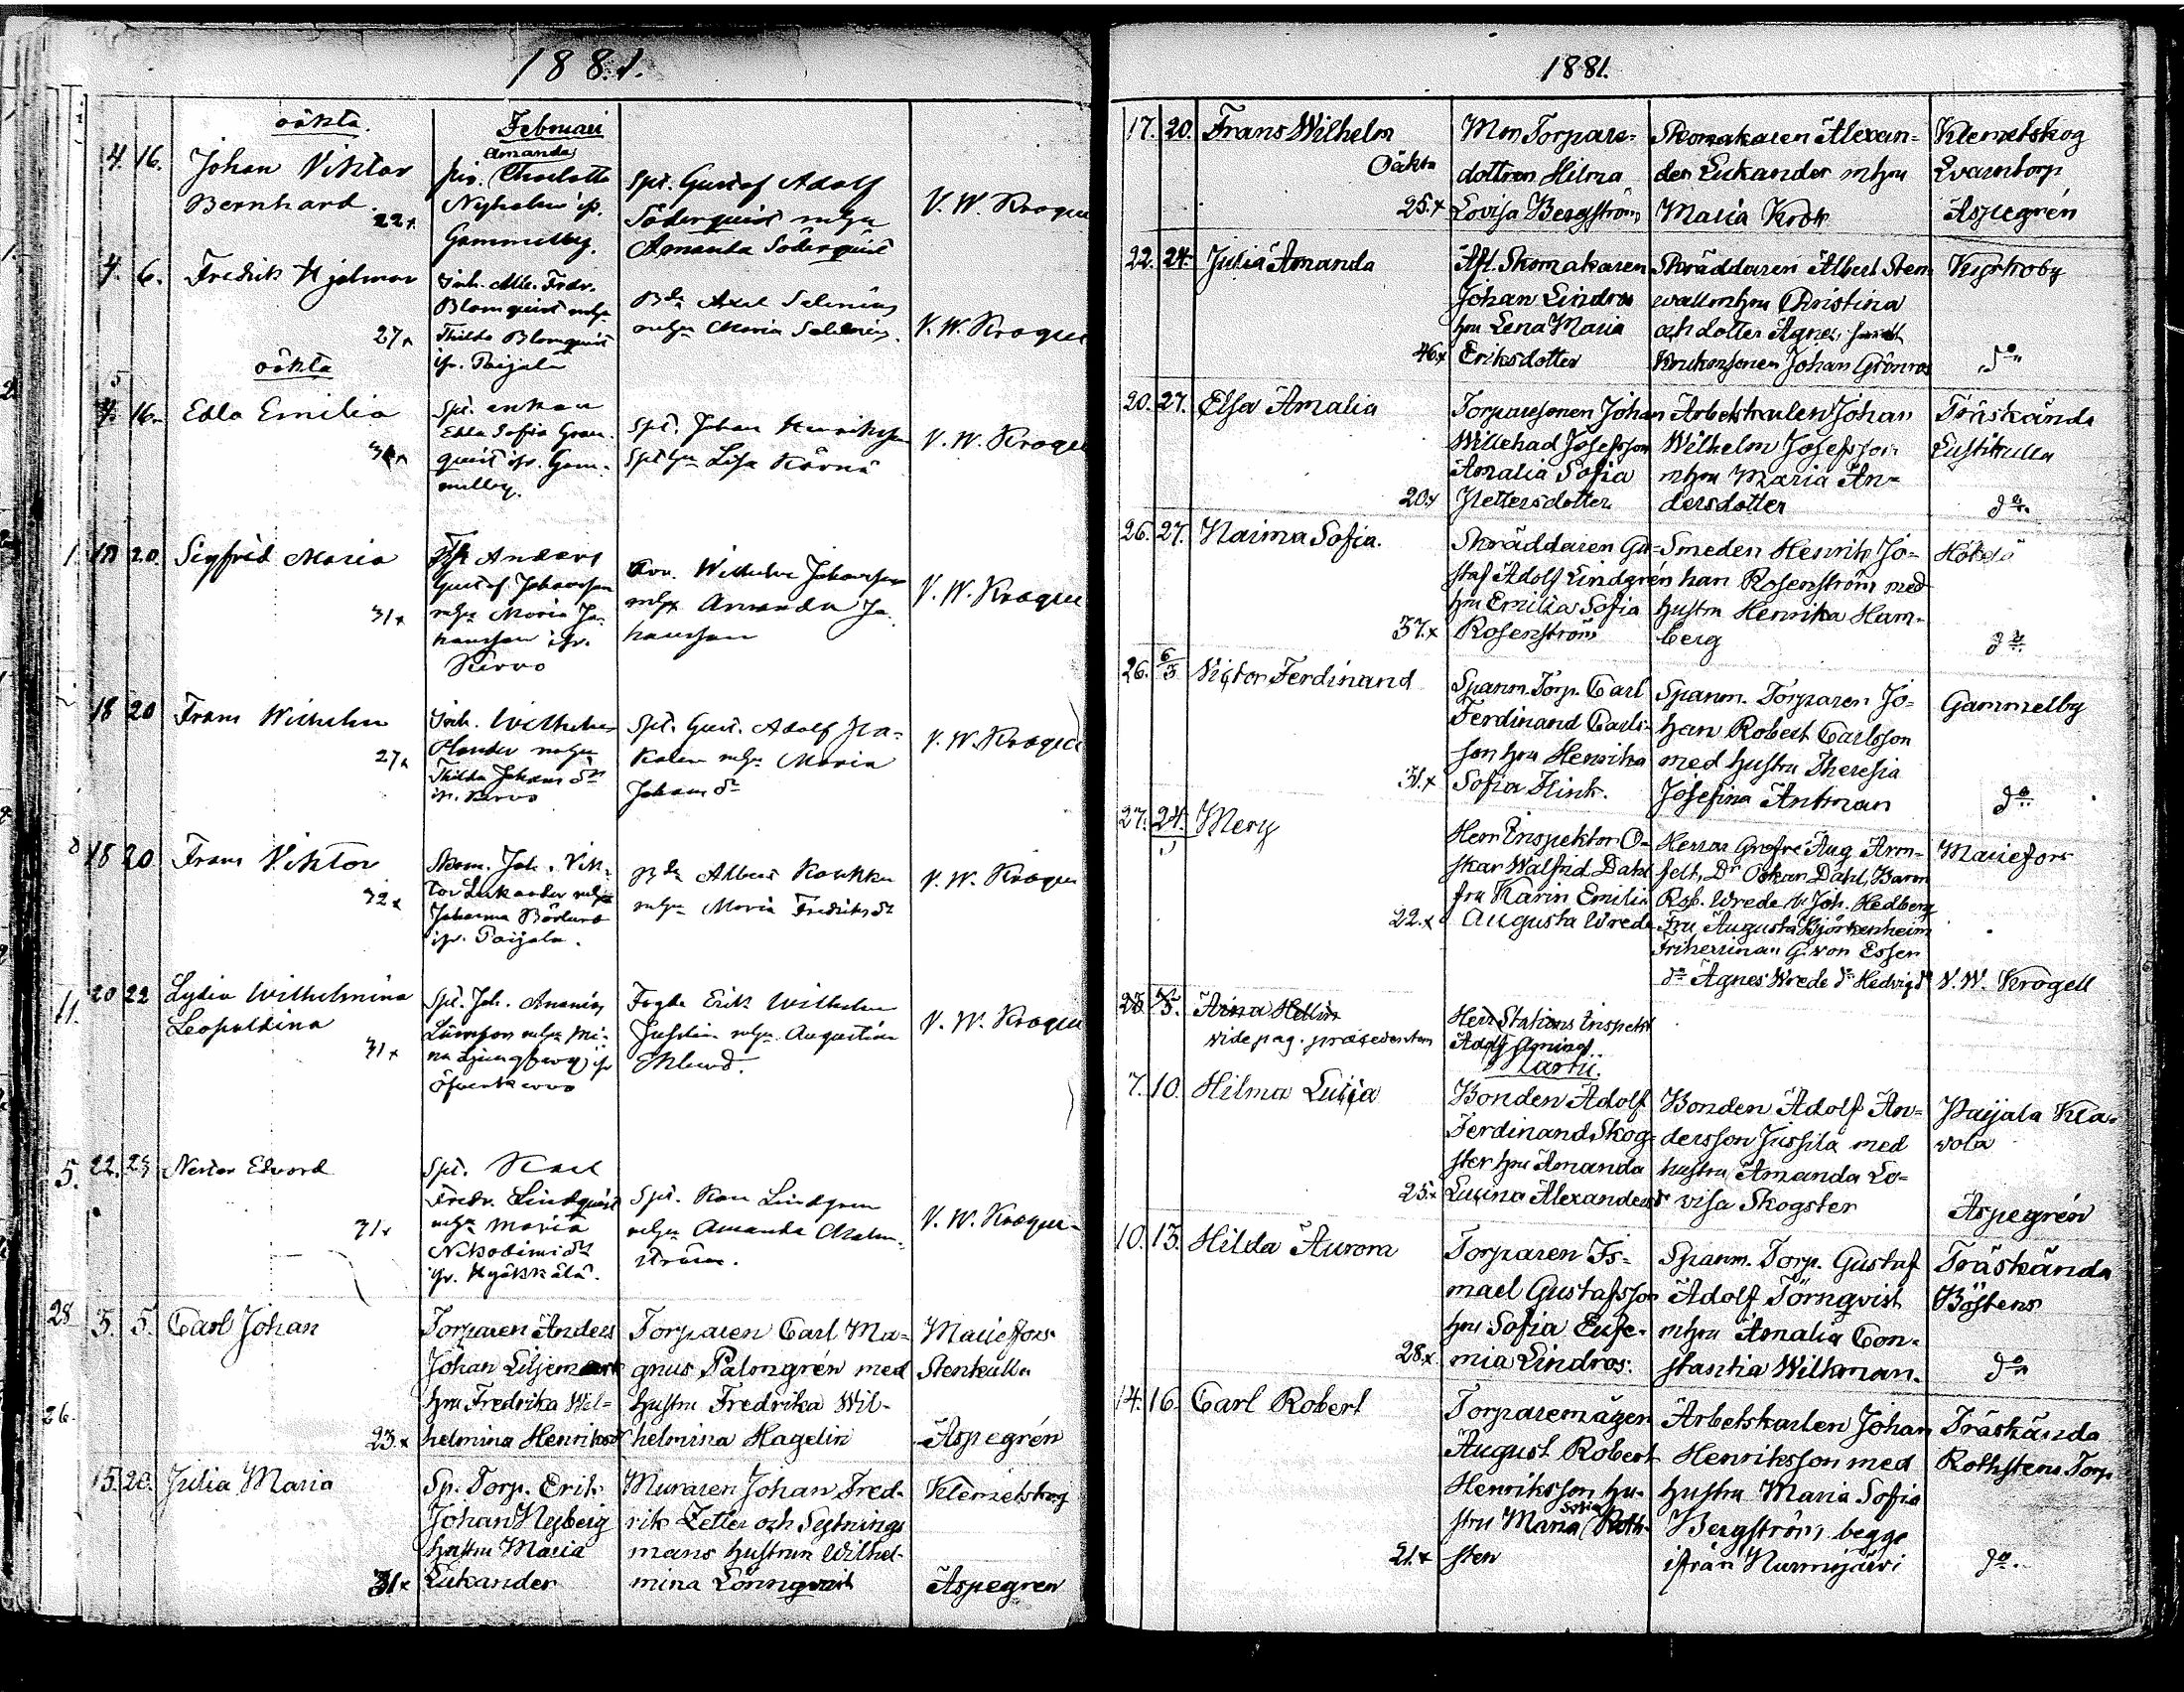 1881.
oäkta.
Februari
4. 16. Johan Viktor
Bernhard.
22 x
Amanda
Charlotta
Gammelby.
Spt. Gustaf Adolf
Söderquist mhu
Amanda Söderquist
V. W. Krogell
4. 6. Fredrik Hjalmar
27 x
Inh. Alb. Fredr.
Blomquist mhu
Thilda Blomquist
ifr. Paijala
Axel Selenius
mhu Maria Selenius.
V. W. Krogell
oäkta
5
16. Edla Emilia
Spt. enkan
Edla Sofia Gran-
quist ifr. Gam-
melby.
Spt. Johan Henriksson
Lisa
V. W. Krogell
1. 18 20. Sigfrid Maria
31 x
Anders
Gustaf Johansson
mhu Maria Jo-
hansson ifr.
Kervo
Wilhelm Johansson
mhu Amanda Jo-
hansson
V. W. Krogell
18 20 Frans Wilhelm
27 x
Inh. Wilhelm
mhu
Thilda Johans dtr
ifr. Kervo
Spt. Gust. Adolf
mhu Maria
Johans dr
V. W. Krogell
18 20 Frans Viktor
32 x
Skom. Joh. Vik-
tor Lukander mhu
Johanna
ifr. Paijala.
Albert
mhu Maria Fredriks dr
V. W. Krogell
11. 20 22 Lydia Wilhelmina
Leopoldina
31 x
Spt. Joh. Ananias
mhu Mi-
na Ljungberg ifr
Fogde Erik Wilhelm
mhu Augustina
Eklund.
V. W. Krogell
5. 22. 23 Nestor Edvard
31 x
Spt. Karl
Fredr. Lindquist
mhu Maria
Nikodemi dtr
ifr. Hyökkälä.
Spt. Lindgren
mhu Amanda Malm-
ström.
V. W. Krogell
28 3. 5. Carl Johan
26.
23. x
Torparen Anders
Johan Liljemark
hru Fredrika Wil-
helmina Henriksdr
Torparen Carl Ma-
gnus Palmgrén med
hustru Fredrika Wil-
helmina Hagelin
Mariefors
Stenkulla
Aspegrén
15. 20. Julia Maria
31 x
Sp. Torp. Erik
Johan Nyberg
hustru Maria
Lukander
Muraren Johan Fred-
rik Zetter och Sytnings
mans hustrun Wilhel-
mina Lönnqvist
Klemetskog
Aspegren
1881.
17. 20. Frans Wilhelm
Oäkta
25. x
Mor Torpare-
dottren Hilma
Lovisa Bergström
Skomakaren Alexan-
der Lukander mhru
Maria Krok
Klemetskog
Qvarntorp
Aspegrén
22. 24. Julia Amanda
46. x
Afl. Skomakaren
Johan Lindros
hru Lena Maria
Eriksdotter
Skräddaren Albert Sten-
wall mhru Christina
och dotter Agnes samt
Johan Grönros
Kyrkoby
do
20. 27. Elsa Amalia
20. x
Torparesonen Johan
Willehad Josefsson
Amalia Sofia
Pettersdotter
Arbetskarlen Johan
Wilhelm Josefsson
mhru Maria An-
dersdotter
Träskända
Lustikulla
do
26. 27. Naima Sofia.
37. x
Skräddaren Gu-
staf Adolf Lindgrén
hru Emilia Sofia
Rosenström
Smeden Henrik Jo-
han Rosenström med
hustru Henrika Ham-
berg
do
26. 6/3 Victor Ferdinand
31. x
Spanm. Torp. Carl
Ferdinand Carls-
son hru Henrika
Sofia Flink.
Spanm. Torparen Jo-
han Robert Carlsson
med hustru Theresia
Josefina Antman
Gammelby
do
27. 24. Mery
22. x
Herr Inspektor O-
skar Walfrid Dahl
fru Karin Emilia
Augusta Wrede
Herrar Grefve Aug Arm-
felt, Dr Oskar Dahl, Baron
Rob. Wrede Joh. Hedberg
Fru Augusta Björkenheim
friherrinan G. von Essen
do Agnes Wrede do Hedvig do
Mariefors
V. W. Krogell
Arina Hellin
vide pag. præsedentem
Herr Stations Inspekt
Adolf Aminof.
Martii.
7. 10. Hilma Lucia
25. x
Bonden Adolf
Ferdinand Skog-
ster hru Amanda
Lucina Alexandersdr
Bonden Adolf An-
dersson Jussila med
hustru Amanda Lo-
visa Skogster
Paijala Kla-
vola
Aspegrén
10. 13. Hilda Aurora
28. x
Torparen Is-
mael Gustafsson
hru Sofia Eufe-
mia Lindros.
Spanm. Torp. Gustaf
Adolf Törnqvist
mhru Amalia Con-
stantia Wilkman.
Träskända
Böstens
do
14. 16. Carl Robert
21. x
Torparemågen
August Robert
Henriksson hu-
stru Maria Sofia Roth-
sten
Arbetskarlen Johan
Henriksson med
hustru Maria Sofia
Bergström, begge
ifrån Nurmijärvi
Träskända
Rothstens Torp
do.